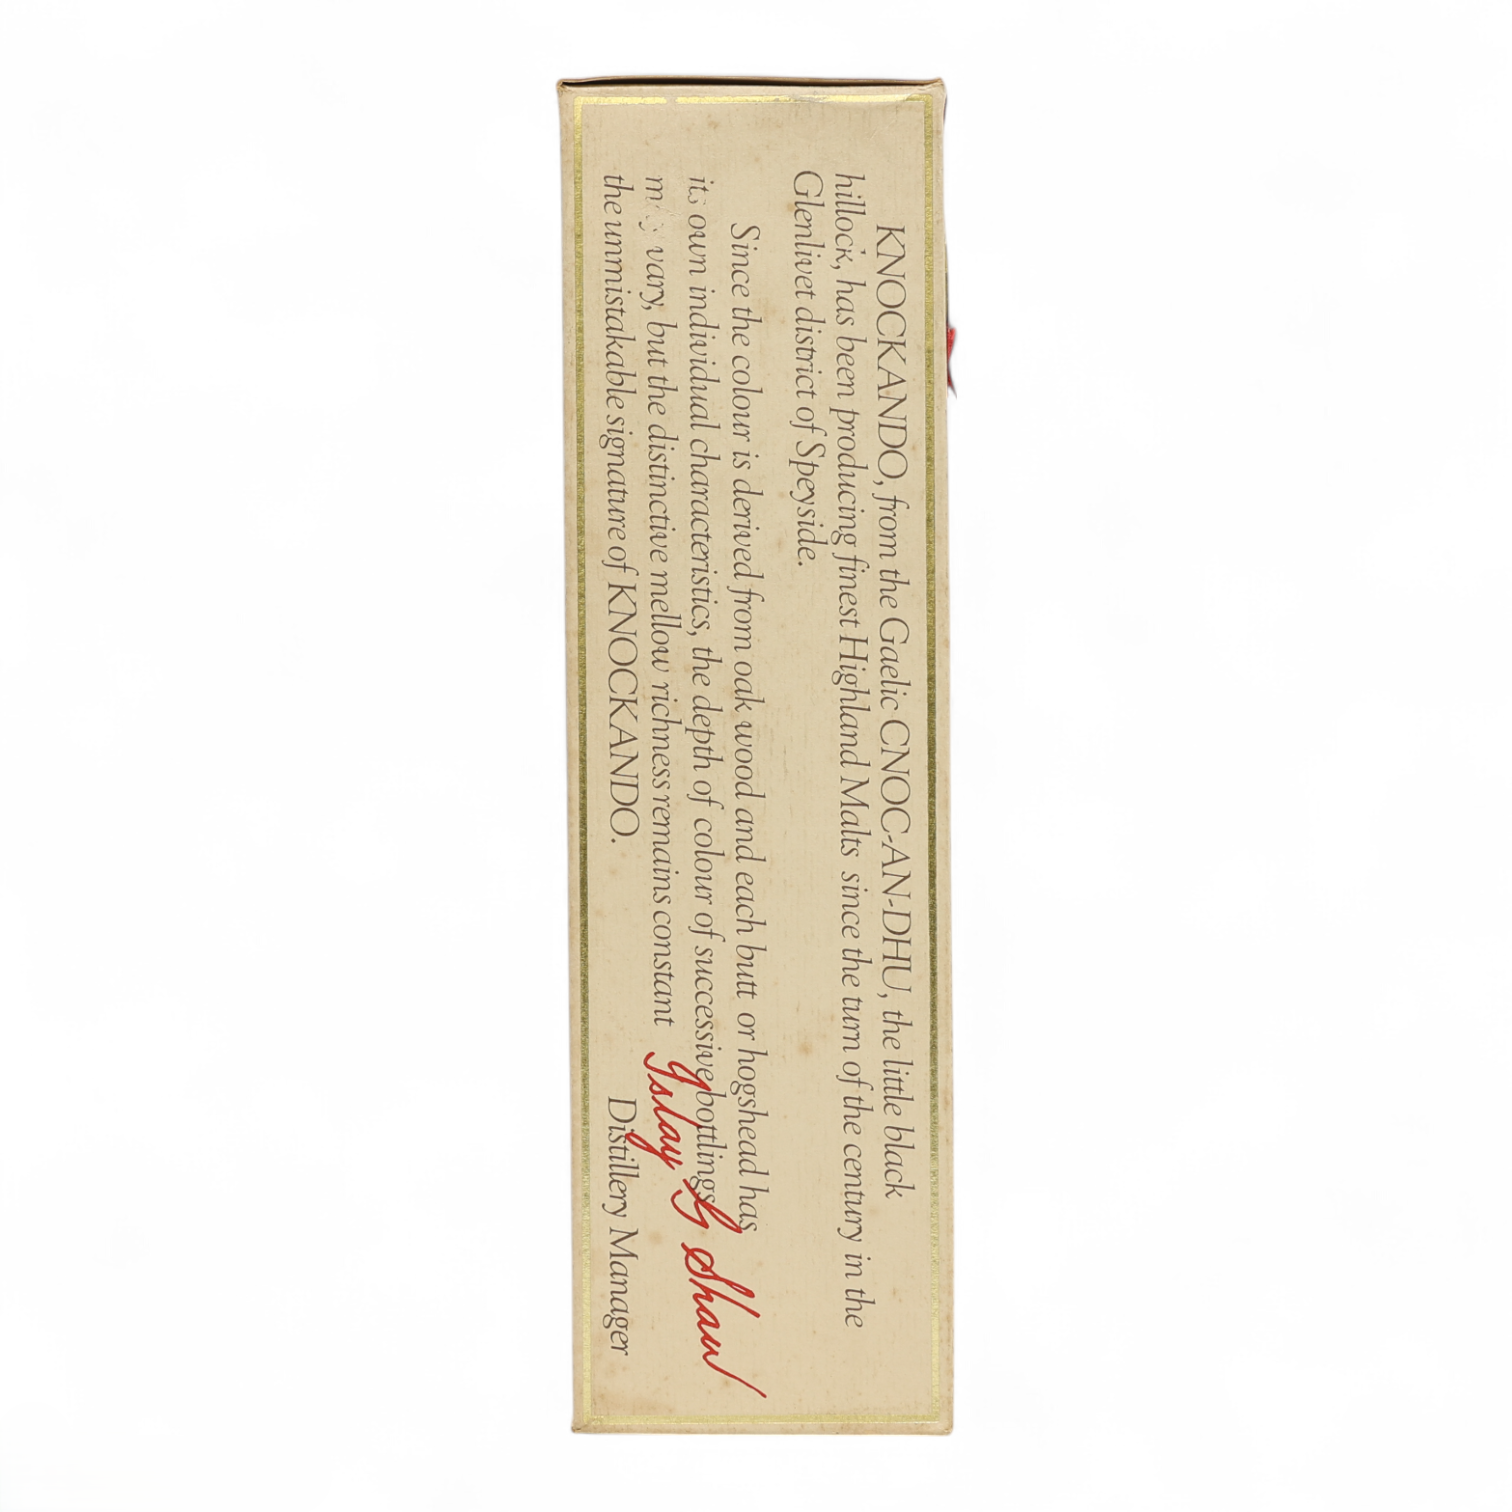 KNOCKANDO, from the Gaelic CNOC-AN-DHU, the little black
hillock, has been producing finest Highland Malts since the turn of the century in the
Glenlivet district of Speyside.
Since the colour is derived from oak wood and each butt or hogshead has
its own individual characteristics, the depth of colour of successive bottlings
may vary, but the distinctive mellow richness remains constant
the unmistakable signature of KNOCKANDO.
Islay G Shaw
Distillery Manager